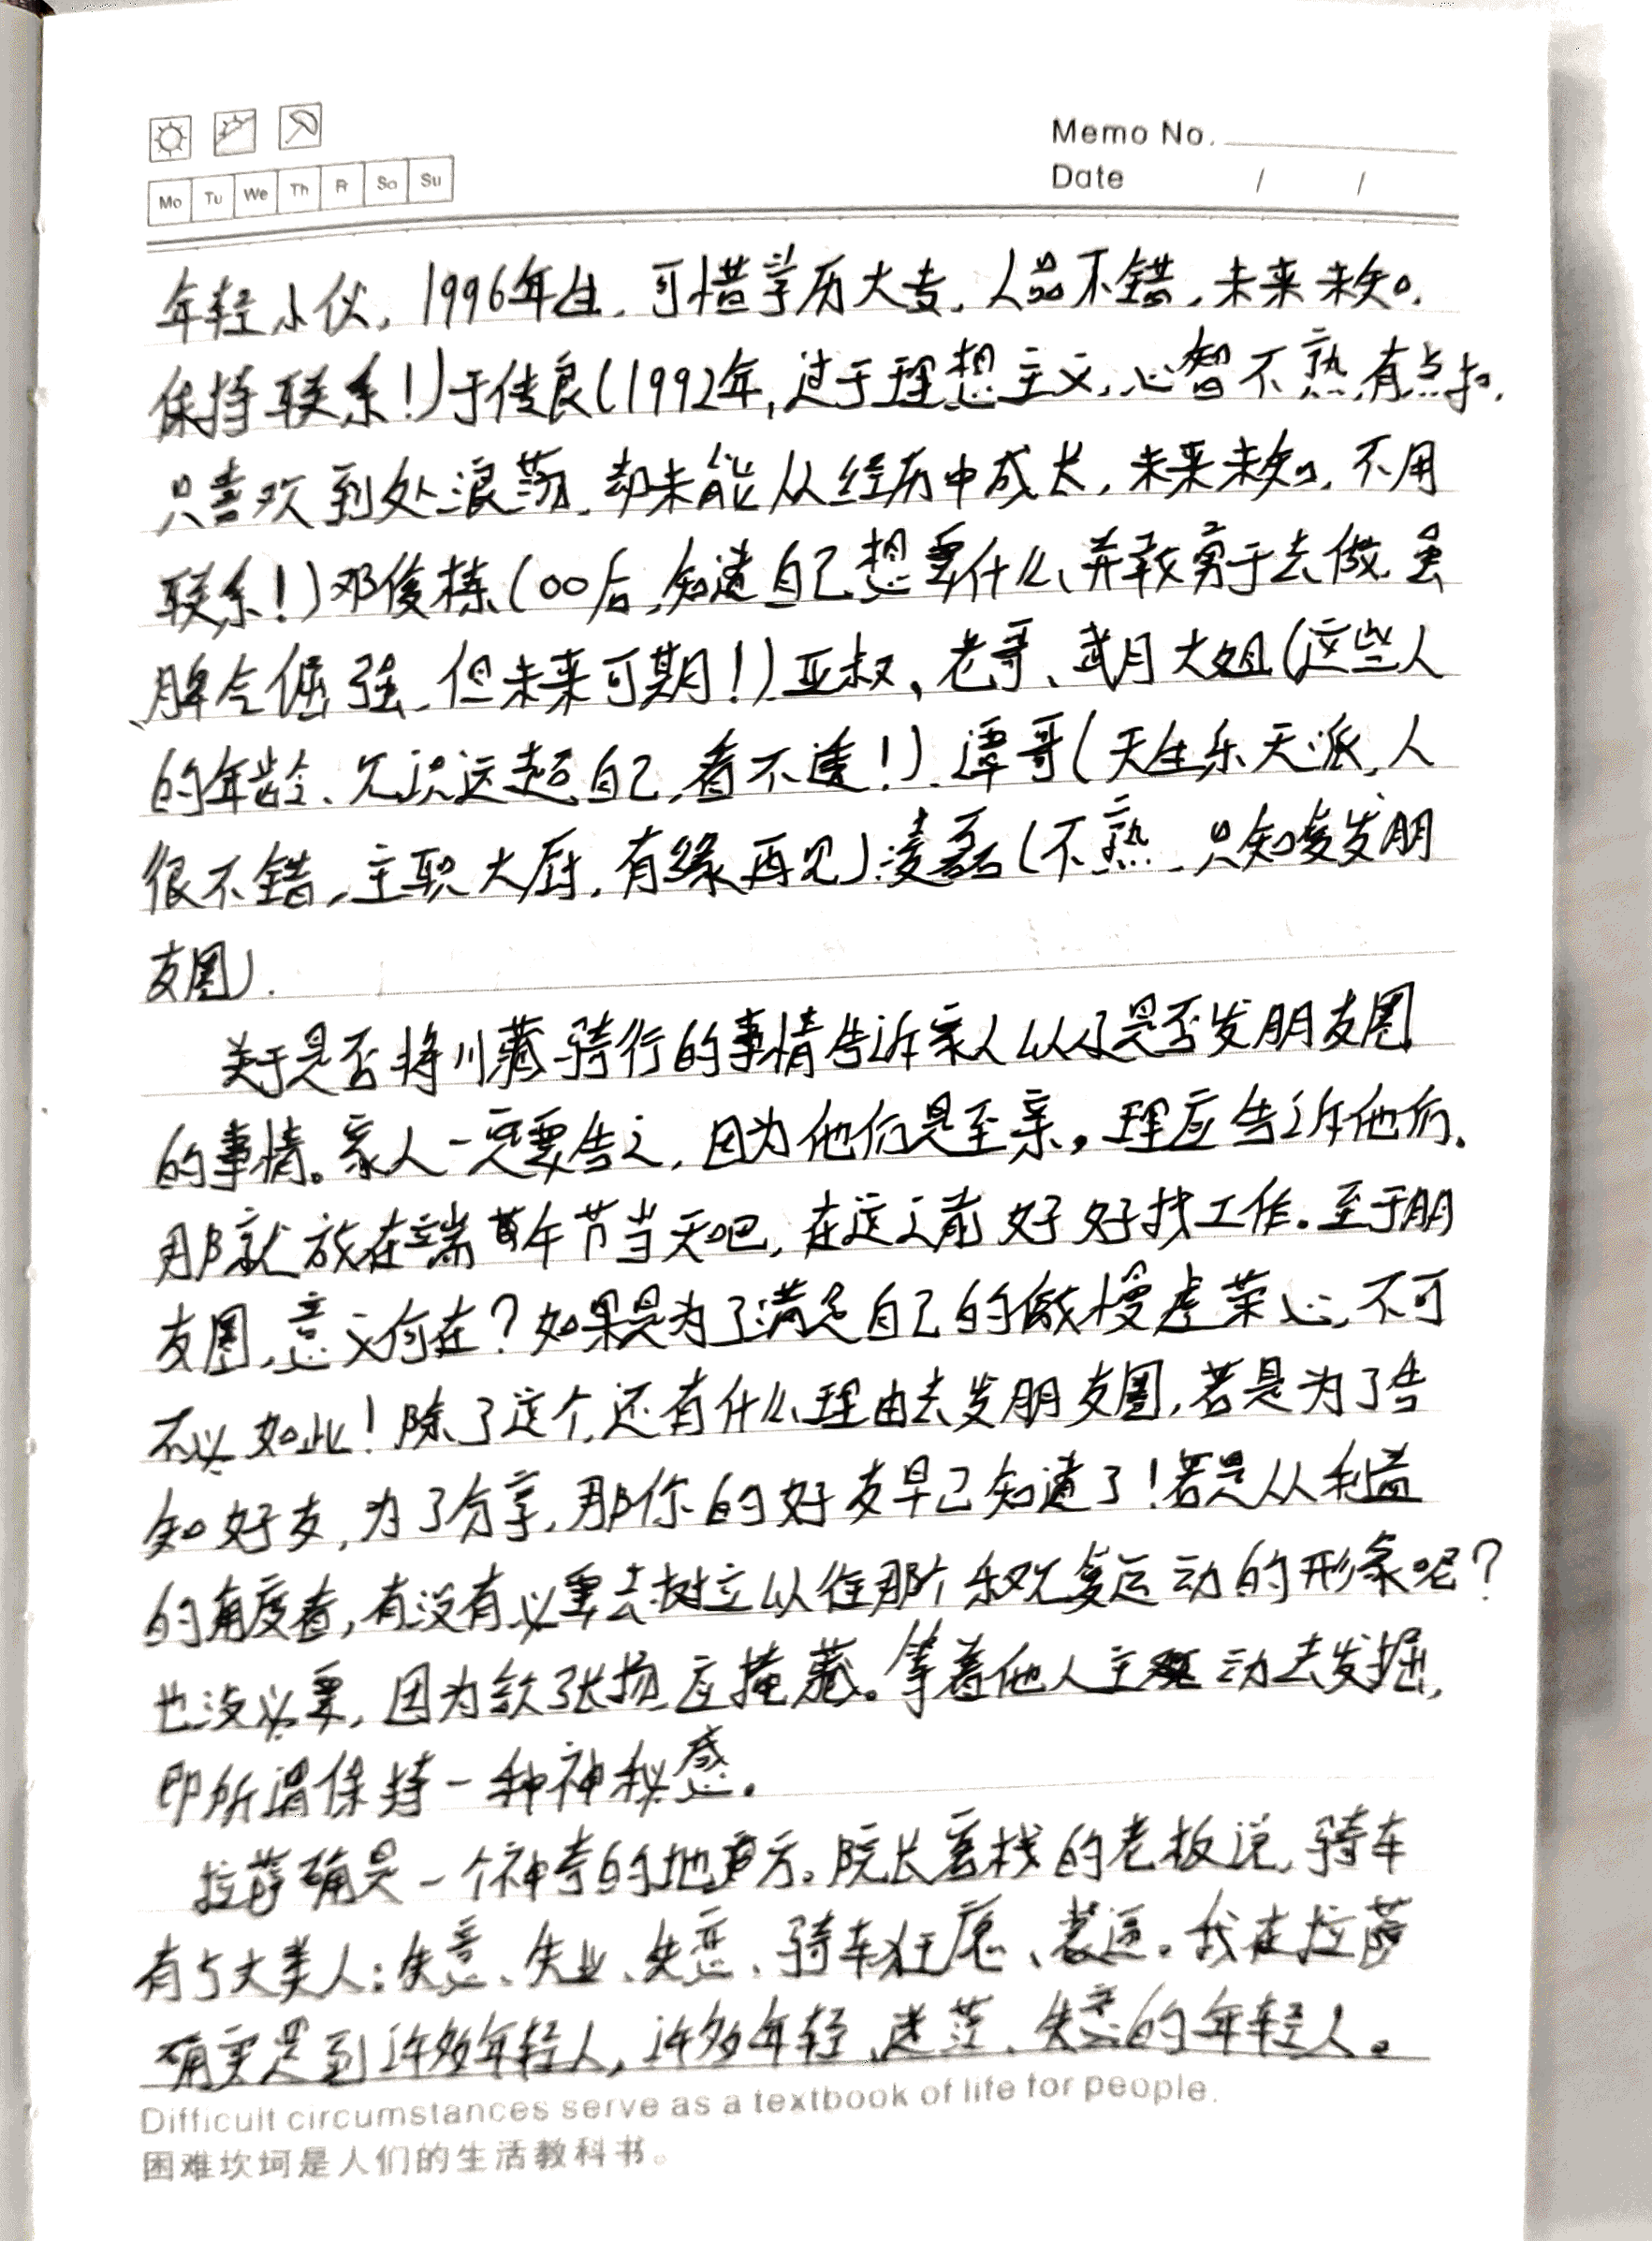 Memo No.
Mo Tu We Th Fr Sa Su
Date / /
年轻小伙,1996年生,可惜学历大专,人品不错,未来未知。
保持联系!)于传良(1992年,过于理想主义,心智不熟,有点
只喜欢到处浪荡,却未能从经历中成长,未来未知,不用
联系!)邓俊栋(00后,知道自己想要什么,并敢勇于去做,虽
脾气倔强,但未来可期!)亚叔、老哥、武月大姐(这些人
的年龄、见识远超自己,看不透!)、谭哥(天生乐天派,人
很不错,主职大厨,有缘再见)凌磊(不熟,只知爱发朋
友圈).
关于是否将川藏骑行的事情告诉家人以及是否发朋友圈
的事情。家人一定要告之,因为他们是至亲,理应告诉他们.
那就放在端午节当天吧,在这之前好好找工作.至于朋
友圈,意义何在?如果是为了满足自己的傲慢虚荣心,不可
不必如此!除了这个,还有什么理由去发朋友圈,若是为了告
知好友,为了分享,那你的好友早已知道了!若是从利益
的角度看,有没有必要去树立以往那个乐观爱运动的形象呢?
也没必要,因为欲张扬应掩藏。等着他人主动去发掘,
即所谓保持一种神秘感.
拉萨确是一个神奇的地方。院长客栈的老板说,骑车
有5大类人:失意、失业、失恋、骑车狂魔、装逼。我在拉萨
确实是到许多年轻人,许多年轻、迷茫、失恋的年轻人。
Difficult circumstances serve as a textbook of life for people.
困难坎坷是人们的生活教科书。